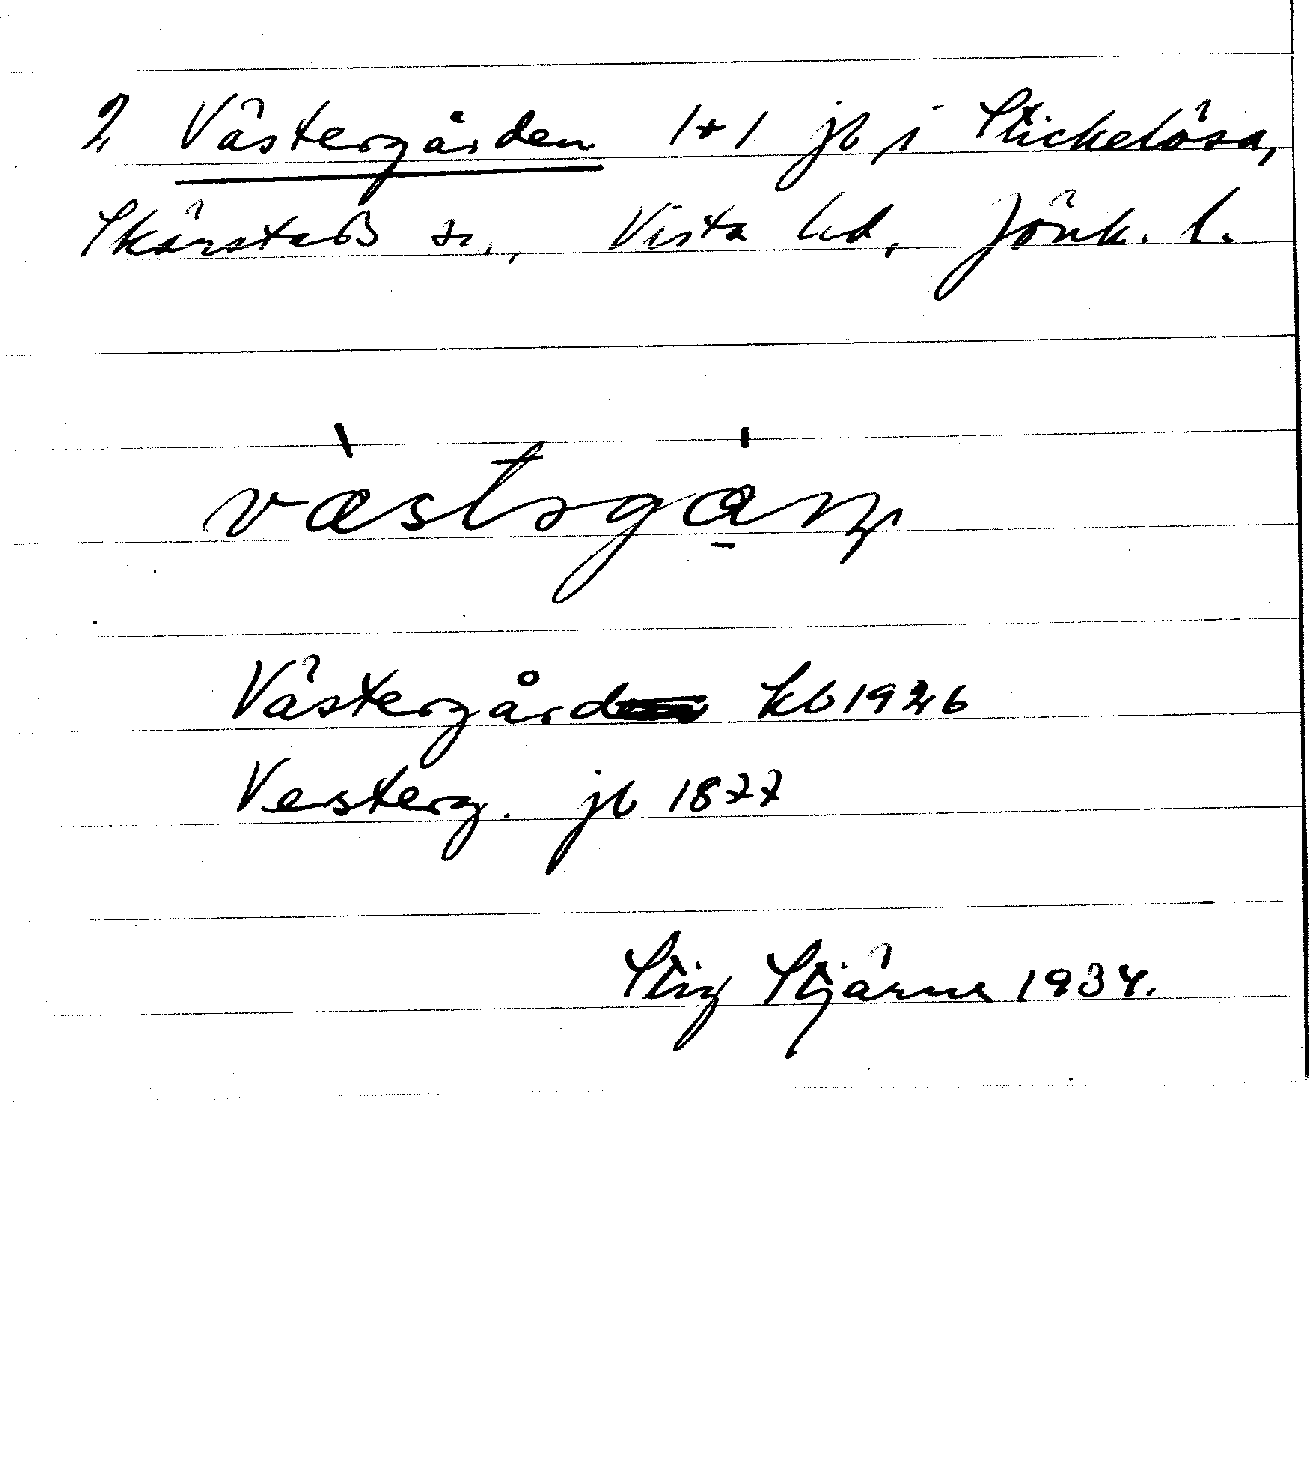 2 Västergården 1+1 jb i Stickelösa,
Skärstads sn., Vista hd, Jönk. l.
Västergård kb 1926
Vesterg. jb 1877
Stig Stjärne 1934.